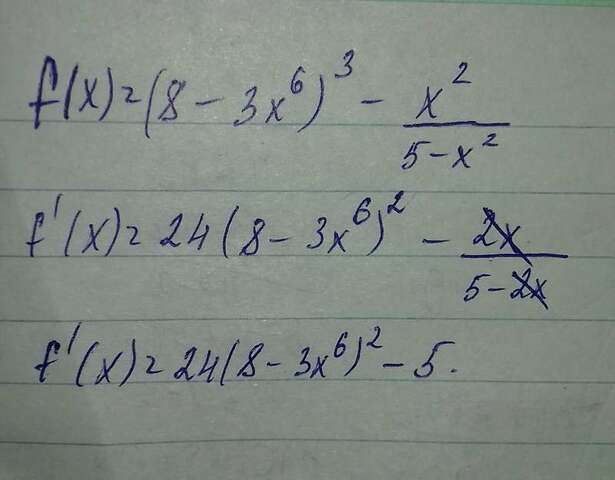 f(x)=(8-3x^6)^3 - x^2/(5-x^2)
f'(x)=24(8-3x^6)^2 - 2x/(5-2x)
f'(x)=24(8-3x^6)^2-5.